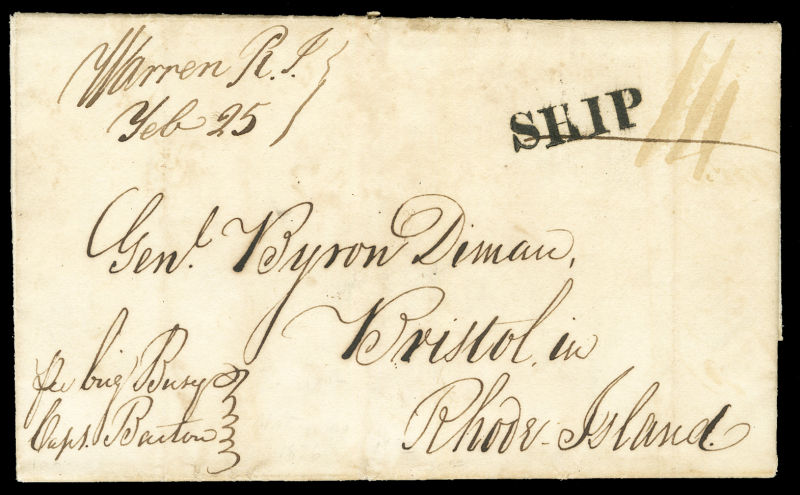 Warren R.I.
Feb 25
SHIP
Genl. Byron Diman,
Bristol, in
Rhode-Island.
per brig Busy
Capt. Barton